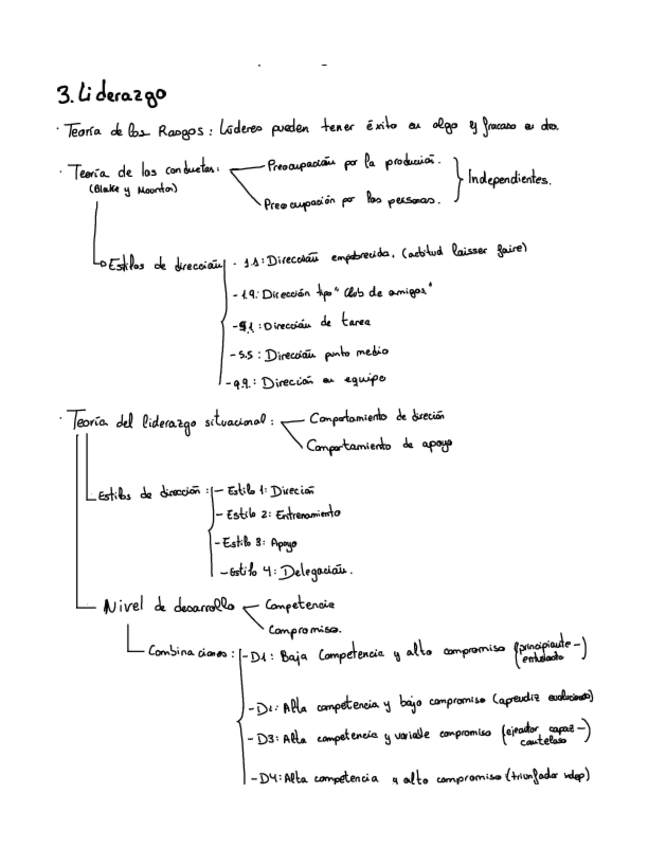 3. Liderazgo
· Teoría de los Rasgos: Líderes pueden tener éxito en algo y fracaso en otro.
· Teoría de las conductas:
(Blake y Mounton)
Preocupación por la produción.
Preocupación por las personas.
Independientes.
Estilos de dirección
· 1.1: Dirección empobrecida. (actitud laisser faire)
- 1.9: Dirección tipo "Club de amigos"
- 9.1: Dirección de tarea
- 5.5: Dirección punto medio
- 9.9.: Direción en equipo
· Teoría del liderazgo situacional:
Comportamiento de direción
Comportamiento de apoyo
Estilos de dirección:
- Estilo 1: Direción
- Estilo 2: Entrenamiento
- Estilo 3: Apoyo
- Estilo 4: Delegación.
Nivel de desarrollo
Competencia
Compromiso.
Combinaciones:
- D1: Baja Competencia y alto compromiso (principiante - entusiasta)
- D2: Alta competencia y bajo compromiso (aprendiz)
- D3: Alta competencia y variable compromiso (ejecutor capaz - cauteloso)
- D4: Alta competencia y alto compromiso (triunfador)